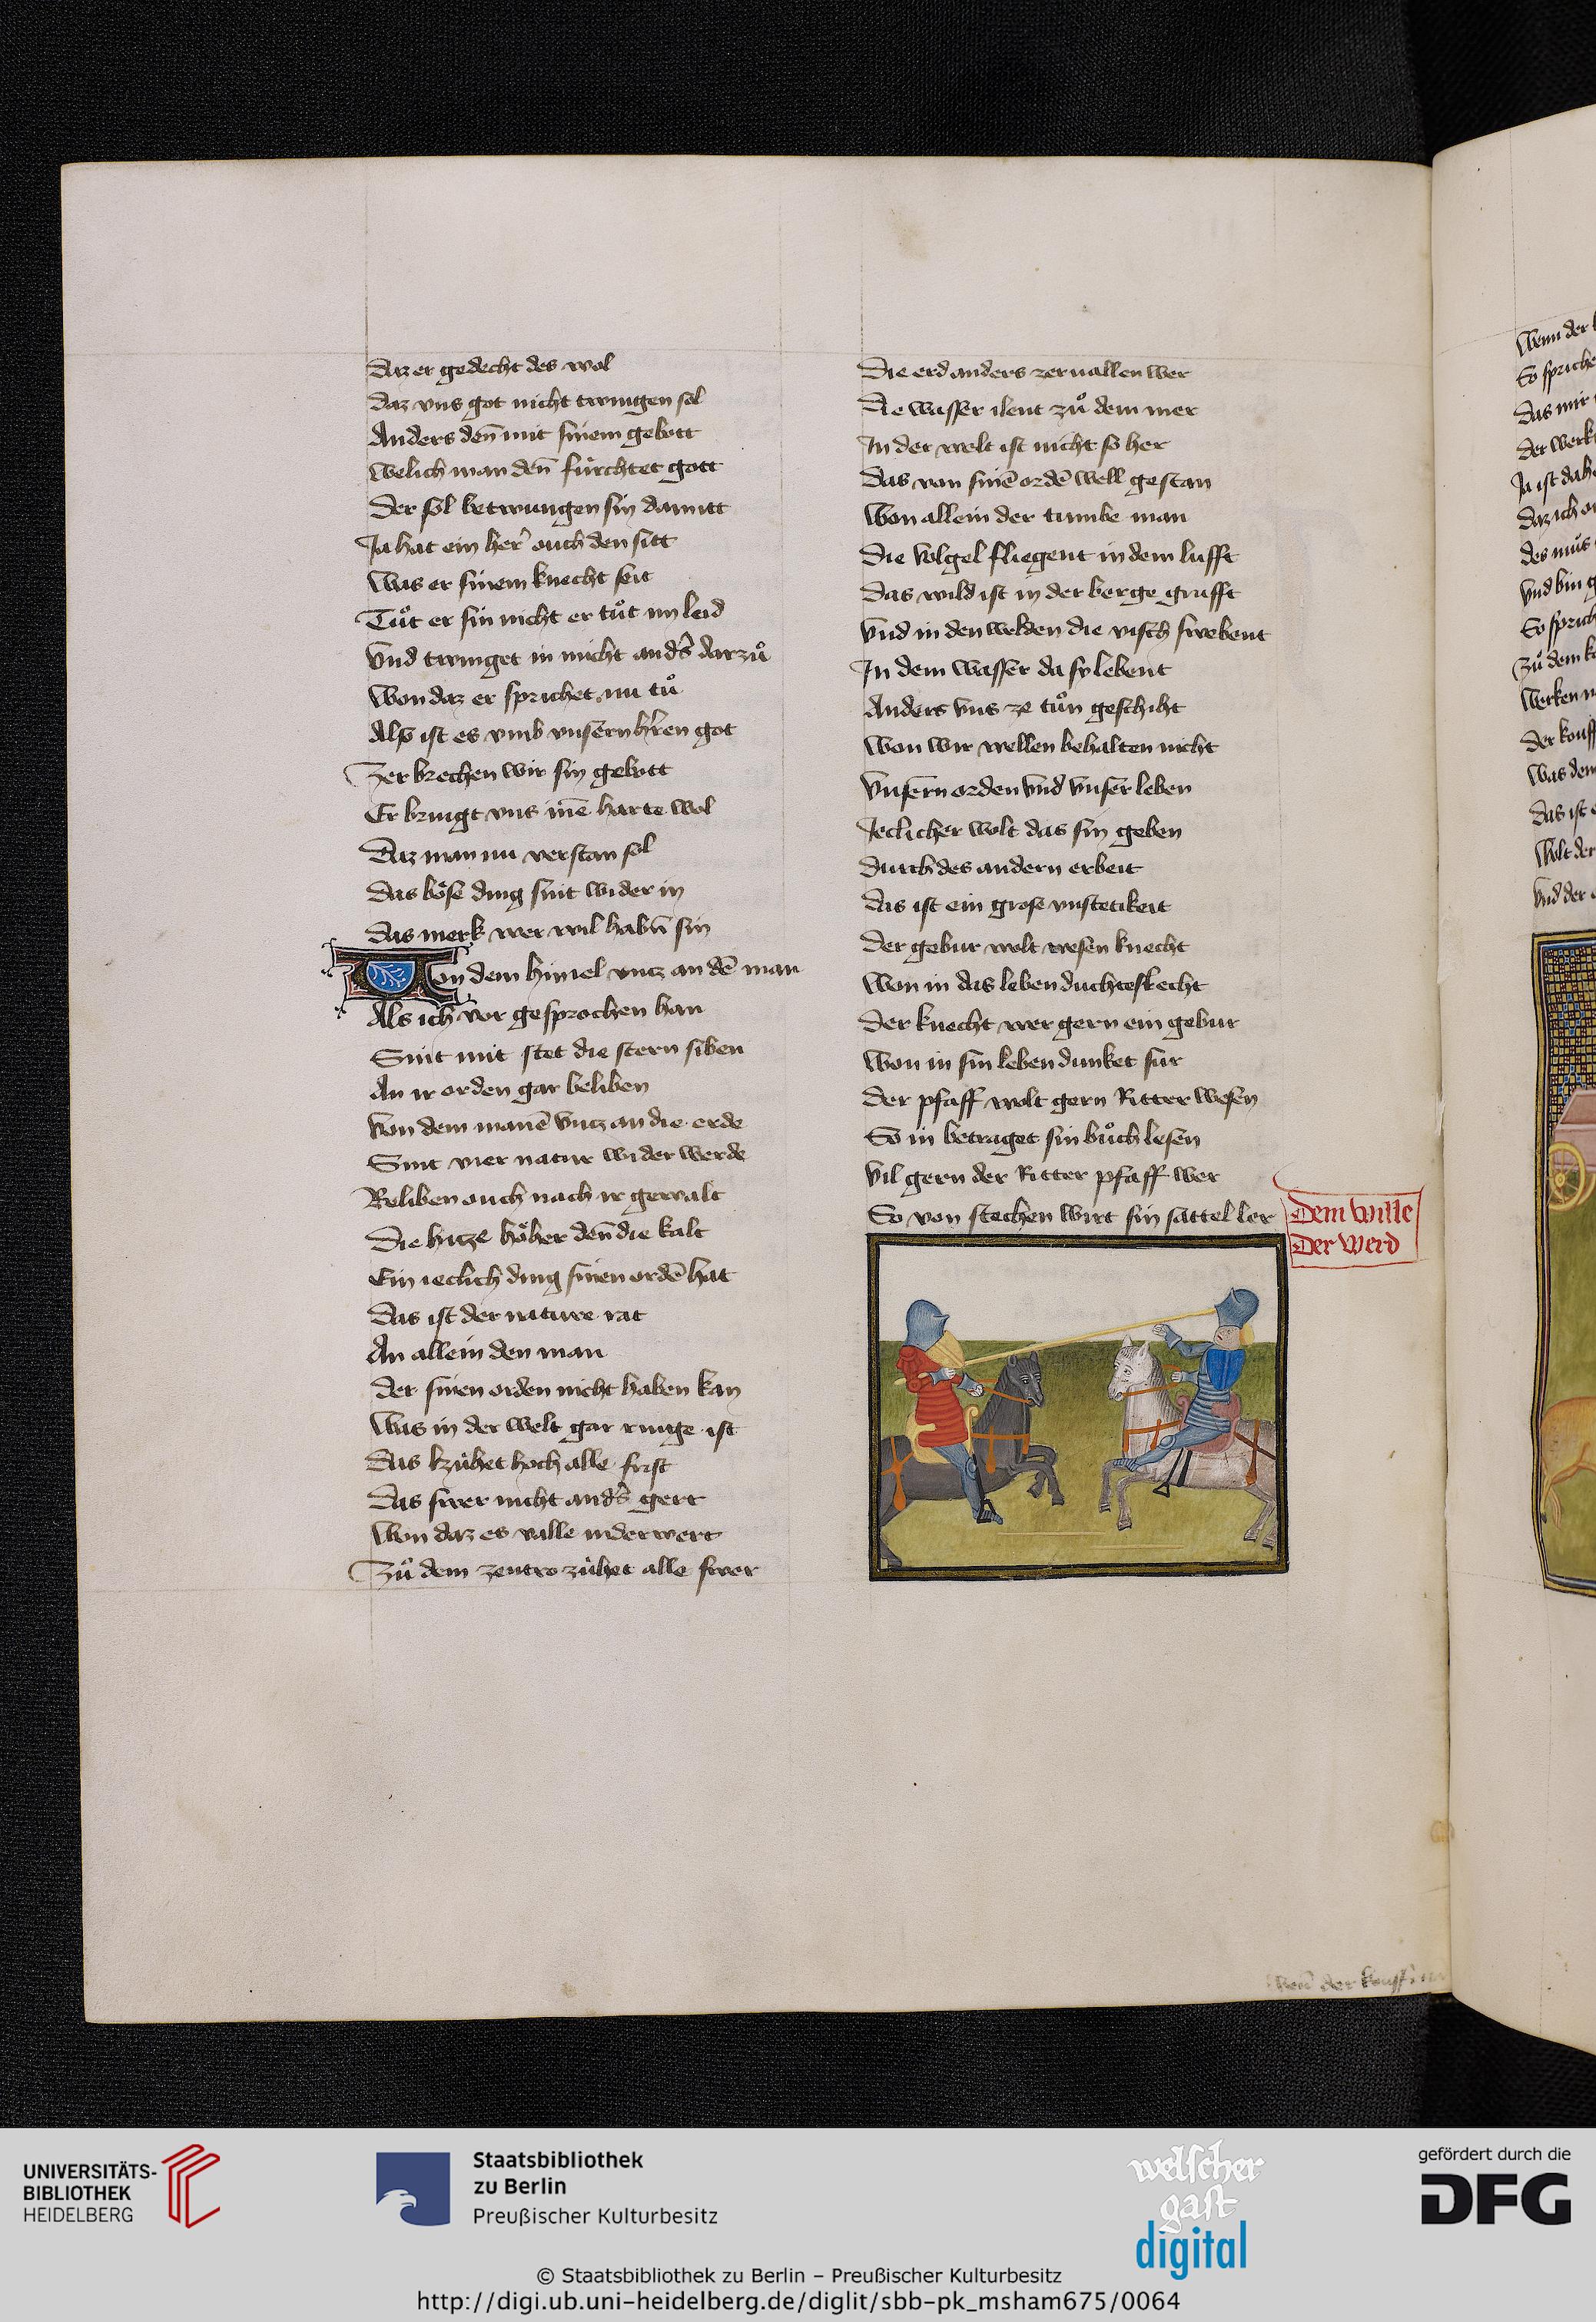 Daz er gedecht des wol
daz vns got nicht twingen sol
Anders den̄ mit sinem gebott
welich man den̄ fürchtet gott
Der sol betwungen sin damitt
Ja hat ein her᷑ ouch den sitt
Was er sinem knecht seit
Tuͦt er sin nicht er tuͦt im leid
Vnd twinget in nicht and᷑s darzuͦ
Won daz er sprichet nu tuͦ
Also ist es vmb vnsern h᷑ren got
Zerbrechen wir sin gebott
Er bringt vns in᷑e harte wol
Daz man nu verstan sol
Das böse ding sint wider in
das merk wer wil habn̄ sin
Von dem himel vntz an dē man
Als ich vor gesprochen han
Sint mit stet die stern siben
An ir orden gar beliben
Von dem manē vntz an die erde
Sint vier natur wider werde
Beliben ouch nach ir gewalt
Die hitze höher den̄ die kalt
Ein ieclich ding sinen ordē hat
Das ist der nature rat
An allein den man
der sinen orden nicht haben kan
Was in der welt gar ringe ist
Das kzühet hoch alle frist
Das swer nicht and᷑s gert
Won daz es valle niderwert
Zuͦ dem zentro zühet alle swer
Die erd anders zervallen wer
die wasser ilent zuͦ dem mer
In der welt ist nicht so her
das von sinē ordē well gestan
Won allein der tumbe man
die Volgel fliegent in dem lufft
das wild ist in der berge grufft
Vnd in den welden die visch swebent
In dem wasser da sy lebent
Anders vns ze tuͦn geschiht
Won wir wellen behalten nicht
Vnsern orden vnd vnser leben
Jeclicher wolt das sin geben
durch des andern erbeit
das ist ein grose vnstetikeit
der gebur wolt wesen knecht
Won in das leben duchte slecht
der knecht wer gern ein gebur
Won in sin leben dunket sur
der pfaff wolt gern Ritter wesen
So in betraget sin buͦch lesen
Vil gern der Ritter pfaff wer
So von stechen wirt sin sattel ler
Dem wille
Der werd
wen̄ der kouff
Wenn der
So spriche
Das mir
der werk
Ja ist dah
daz ich
des muͦs
Vnd bin g
So sprich
Zuͦ dem k
Werken
der kouff
Was den
das ist
Wolt der
Vnd der
UNIVERSITÄTS-
BIBLIOTHEK
HEIDELBERG
Staatsbibliothek
zu Berlin
Preußischer Kulturbesitz
welscher
gast
digital
gefördert durch die
DFG
© Staatsbibliothek zu Berlin – Preußischer Kulturbesitz
http://digi.ub.uni-heidelberg.de/diglit/sbb-pk_msham675/0064